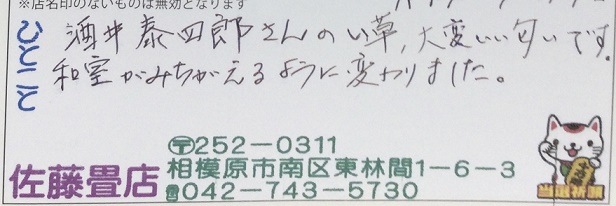 ※店名印のないものは無効となります
ひとこと
酒井泰四郎さんのい草、大変いい匂いです。
和室がみちがえるように変わりました。
〒252-0311
佐藤畳店
相模原市南区東林間1-6-3
☎042-743-5730
当選祈願